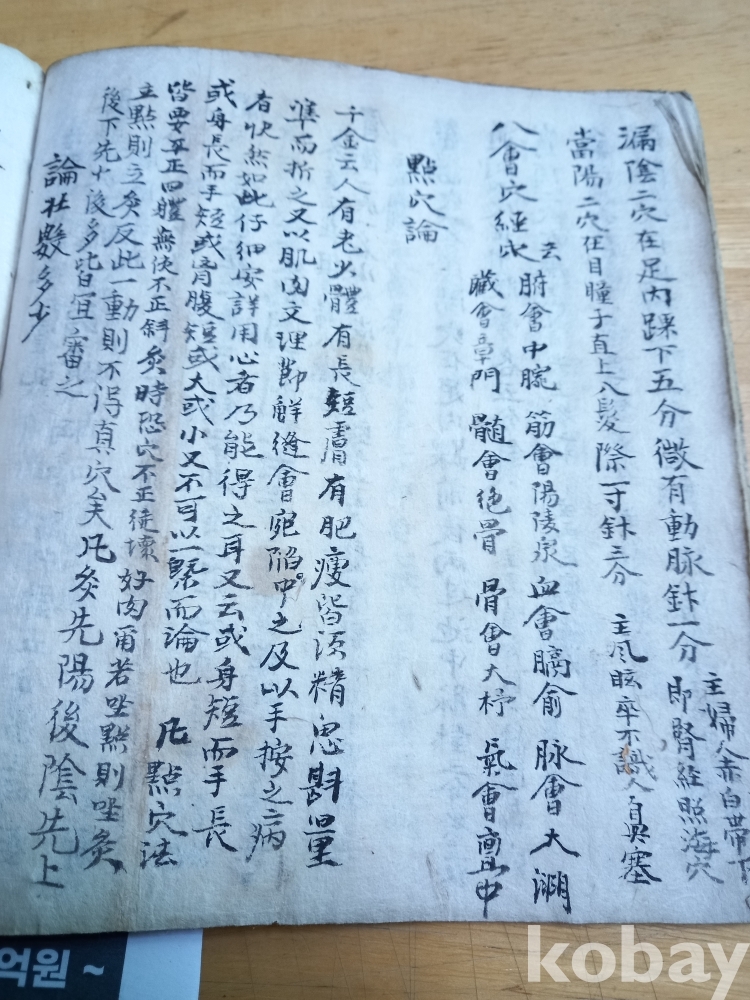 漏陰二穴在足內踝下五分微有動脉針一分 即腎経照海穴
主婦人赤白帶下
當陽二穴在目瞳子直上入髮際一寸針三分 主風眩卒不識人鼻塞
八會穴經穴云 腑會中脘 筋會陽陵泉 血會膈俞 脉會大淵
臟會章門 髓會絶骨 骨會大杼 氣會亶中
點穴論
千金云人有老少體有長短膚有肥瘦皆須精思斟量
準而折之又以肌肉文理節觧縫會宛陷中之及以手按之病
者快然如此仔細安詳用心者乃能得之耳又云或身短而手長
或身長而手短或胷腹短或大或小又不可以一槩而論也 凡點穴法
皆要平正四體無使不正斜灸時恐穴不正徒壞好肉甭若坐點則坐灸
立點則立灸反此一動則不得真穴矣凡灸先陽後陰先上
後下先少後多皆宜審之
論壯數多少
억원 ~
kobay